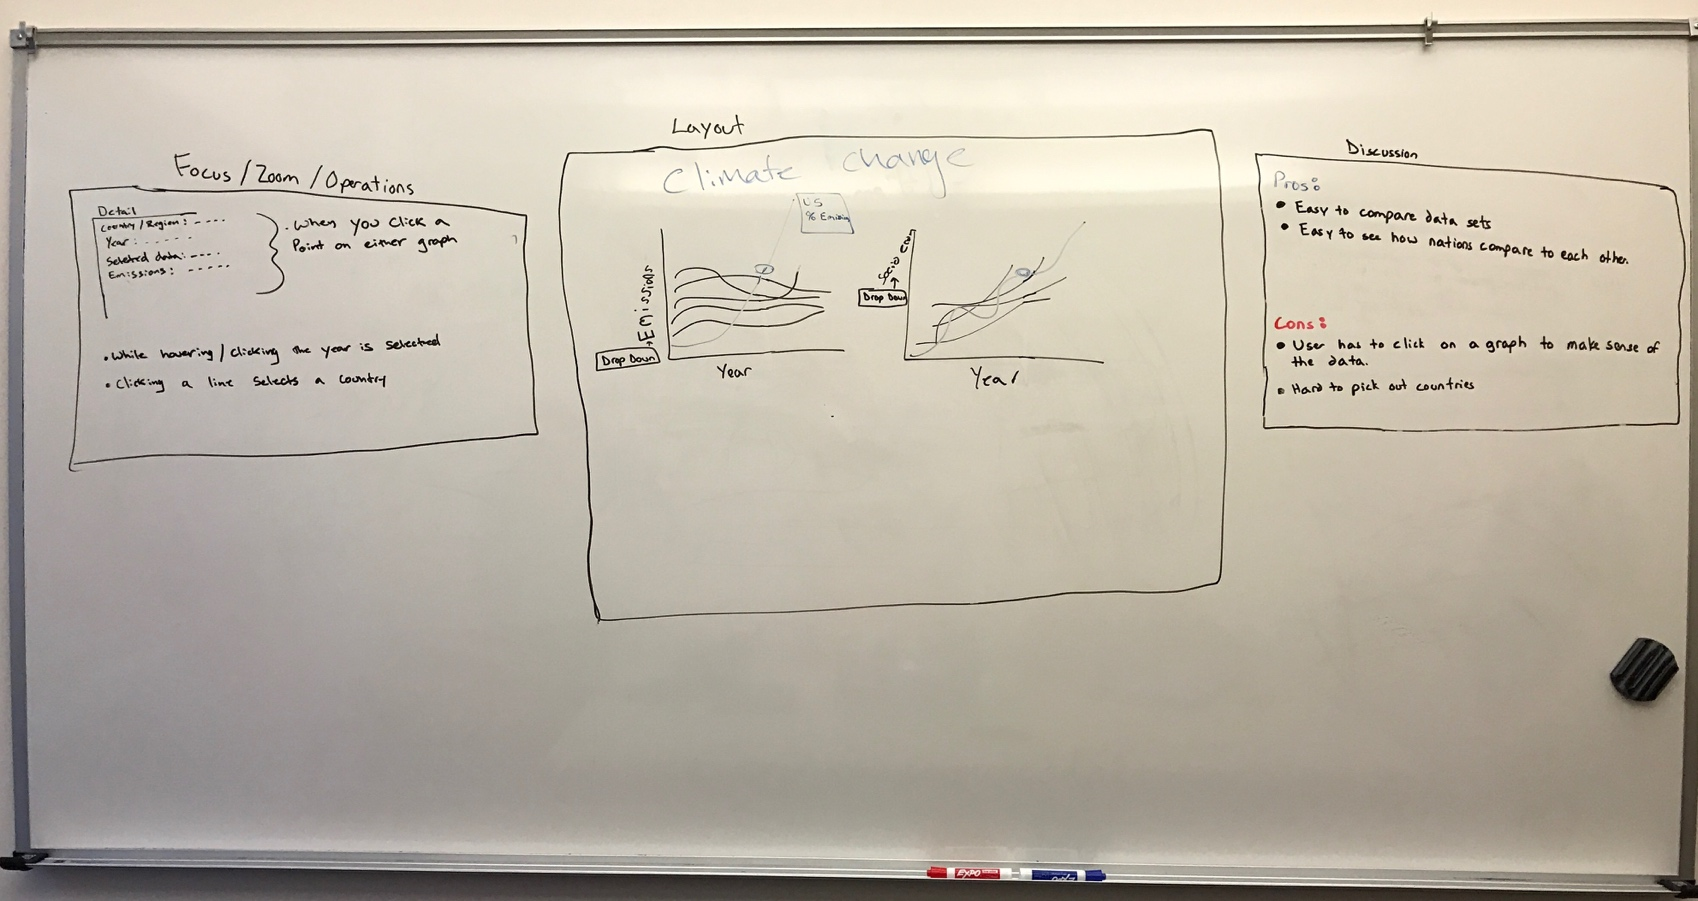 Focus/Zoom/Operations
Detail
Country/Region: ----
Year: ------
Selected data: ----
Emissions: -----
. When you click a
Point on either graph
• While hovering/clicking the year is selected
• Clicking a line selects a country
Layout
Climate change
US
% Emission
Emissions
Drop Down
Year
Drop Down
Year
Discussion
Pros:
• Easy to compare data sets
• Easy to see how nations compare to each other.
Cons:
• User has to click on a graph to make sense of
the data.
• Hard to pick out countries
EXPO